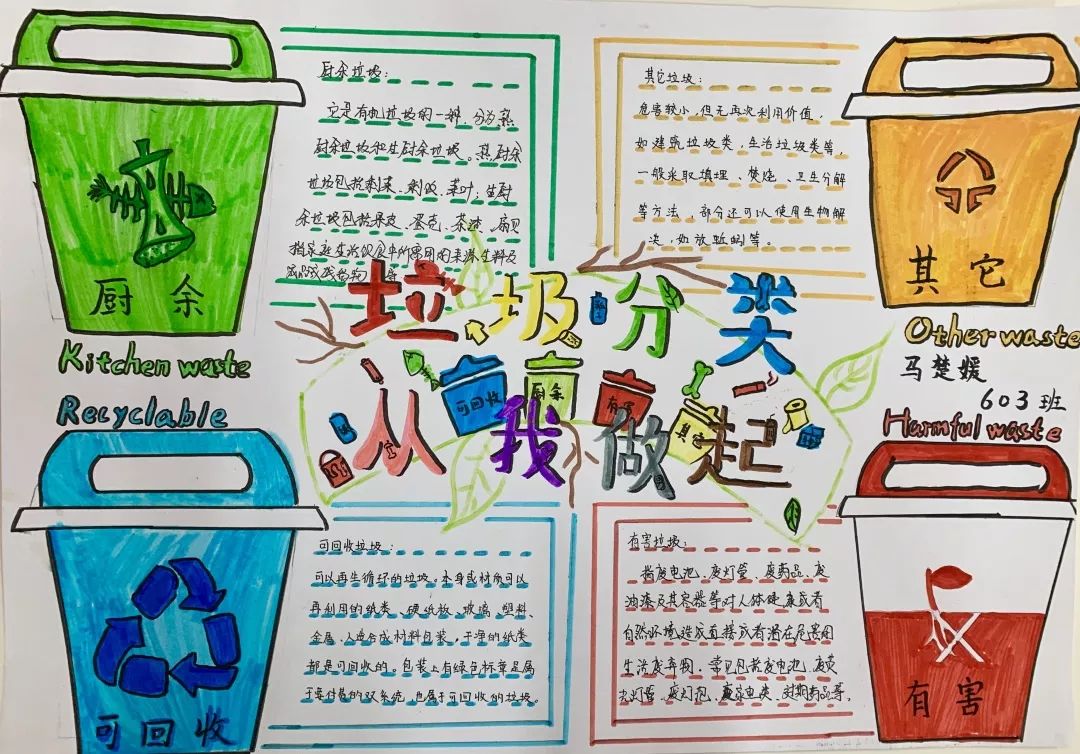 厨余垃圾:
它是有机垃圾的一种，分为熟
厨余垃圾和生厨余垃圾。熟厨余
垃圾包括剩菜、剩饭、菜叶；生厨
余垃圾包括果皮、蛋壳、茶渣、扇贝
指家庭生活饮食中所需用的来源生料及
成品残
厨余
Kitchen waste
其它垃圾:
危害较小,但无再次利用价值,
如建筑垃圾类,生活垃圾类等,
一般采取填埋、焚烧、卫生分解
等方法,部分还可以使用生物解
决,如放蚯蚓等。
其它
Other waste
马楚媛
603班
垃圾分类
从我做起
可回收
厨余
有害
其它
Recyclable
可回收
可回收垃圾:
可以再生循环的垃圾。本身或材质可以
再利用的纸类、硬纸板、玻璃、塑料、
金属、人造合成材料包装,干净的纸类
都是可回收的。包装上有绿色标章是属
于要付费的双系统,也属于可回收的垃圾。
Harmful waste
有害
有害垃圾:
指废电池、废灯管、废药品、废
油漆及其容器等对人体健康或者
自然环境造成直接或者潜在危害的
生活废弃物。常见包括废电池、废荧
光灯管、废灯泡、废家电类、过期药品等。